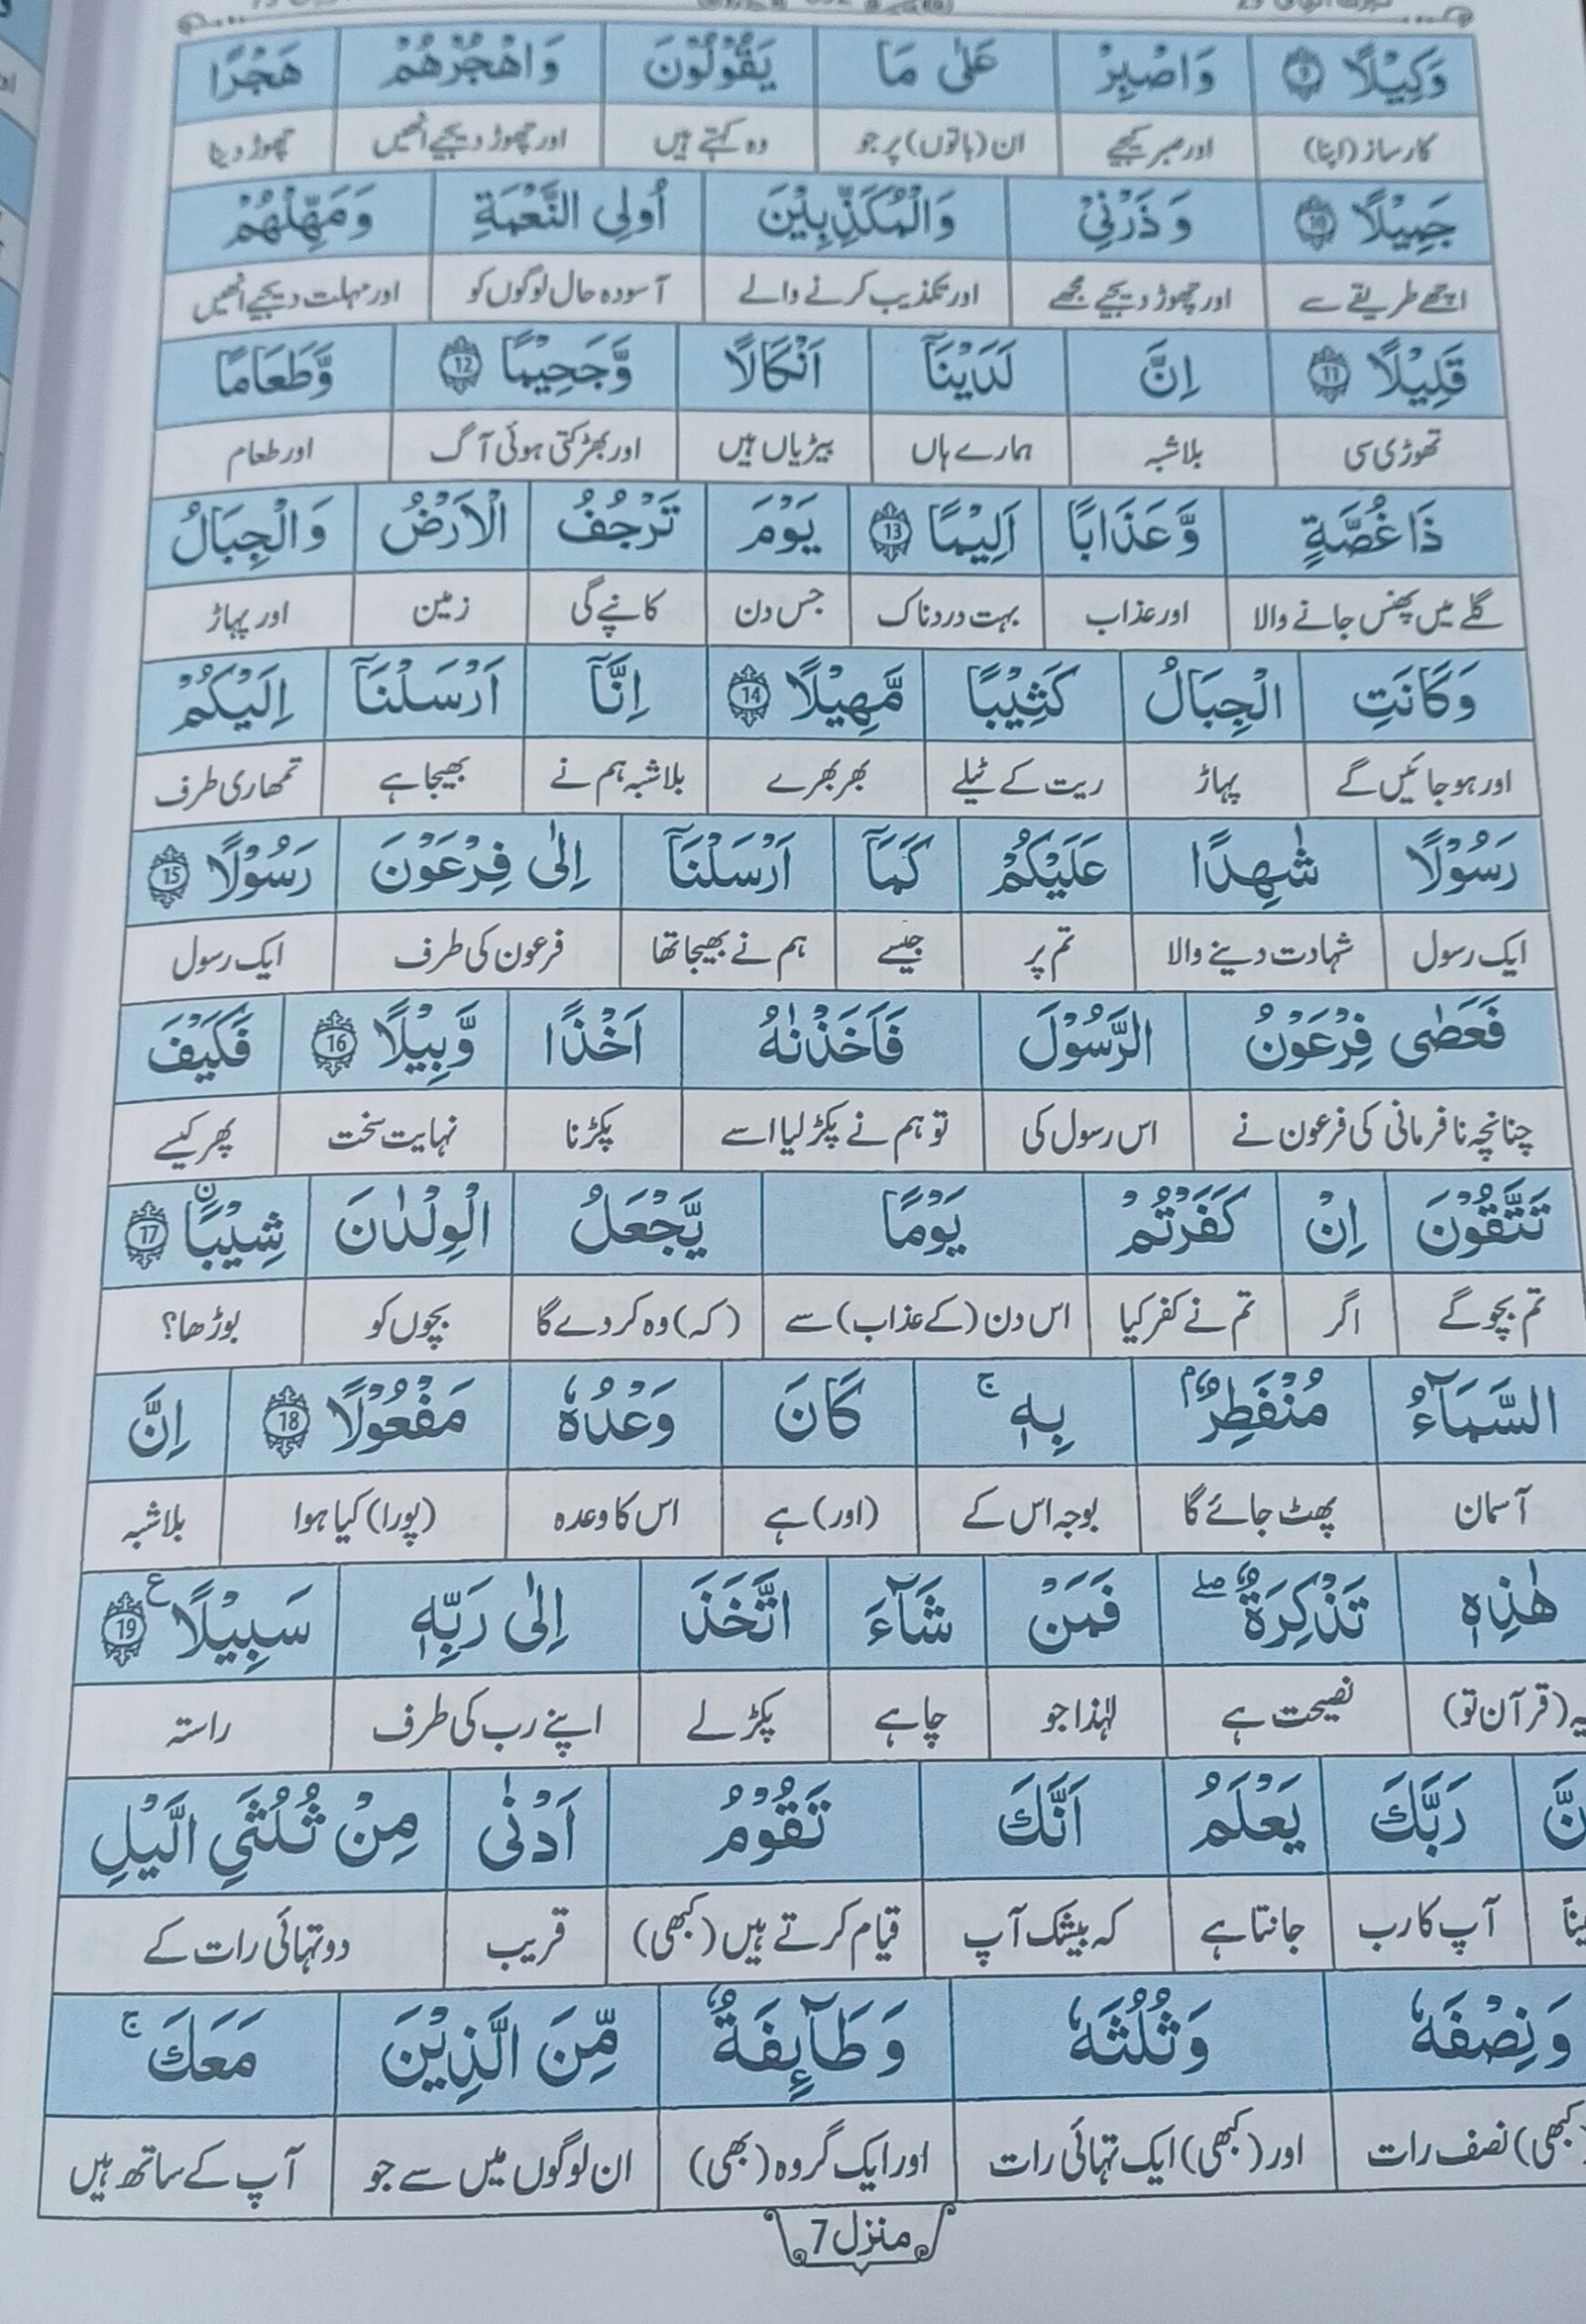 وَكِيْلًا 9 وَاصْبِرْ عَلٰى مَا يَقُوْلُوْنَ وَاهْجُرْهُمْ هَجْرًا
کارساز (اپنا) اور صبر کیجیے ان (باتوں) پر جو وہ کہتے ہیں اور چھوڑ دیجیے انھیں چھوڑ دینا
جَمِيْلًا 10 وَذَرْنِيْ وَالْمُكَذِّبِيْنَ اُولِى النَّعْمَةِ وَمَهِّلْهُمْ
اچھے طریقے سے اور چھوڑ دیجیے مجھے اور تکذیب کرنے والے آسودہ حال لوگوں کو اور مہلت دیجیے انھیں
قَلِيْلًا 11 اِنَّ لَدَيْنَآ اَنْكَالًا وَّجَحِيْمًا 12 وَّطَعَامًا
تھوڑی سی بلاشبہ ہمارے ہاں بیڑیاں ہیں اور بھڑکتی ہوئی آگ اور طعام
ذَا غُصَّةٍ وَّعَذَابًا اَلِيْمًا 13 يَوْمَ تَرْجُفُ الْاَرْضُ وَالْجِبَالُ
گلے میں پھنس جانے والا اور عذاب بہت دردناک جس دن کانپے گی زمین اور پہاڑ
وَكَانَتِ الْجِبَالُ كَثِيْبًا مَّهِيْلًا 14 اِنَّآ اَرْسَلْنَآ اِلَيْكُمْ
اور ہو جائیں گے پہاڑ ریت کے ٹیلے بھربھرے بلاشبہ ہم نے بھیجا ہے تمھاری طرف
رَسُوْلًا شٰهِدًا عَلَيْكُمْ كَمَآ اَرْسَلْنَآ اِلٰى فِرْعَوْنَ رَسُوْلًا 15
ایک رسول شہادت دینے والا تم پر جیسے ہم نے بھیجا تھا فرعون کی طرف ایک رسول
فَعَصٰى فِرْعَوْنُ الرَّسُوْلَ فَاَخَذْنٰهُ اَخْذًا وَّبِيْلًا 16 فَكَيْفَ
چنانچہ نافرمانی کی فرعون نے اس رسول کی تو ہم نے پکڑ لیا اسے پکڑنا نہایت سخت پھر کیسے
تَتَّقُوْنَ اِنْ كَفَرْتُمْ يَوْمًا يَّجْعَلُ الْوِلْدٰنَ شِيْبَاۨ 17
تم بچو گے اگر تم نے کفر کیا اس دن (کے عذاب) سے (کہ) وہ کر دے گا بچوں کو بوڑھا؟
السَّمَآءُ مُنْفَطِرٌۢ بِهٖ ۚ كَانَ وَعْدُهٗ مَفْعُوْلًا 18 اِنَّ
آسمان پھٹ جائے گا بوجہ اس کے (اور) ہے اس کا وعدہ (پورا) کیا ہوا بلاشبہ
هٰذِهٖ تَذْكِرَةٌ ۖ فَمَنْ شَآءَ اتَّخَذَ اِلٰى رَبِّهٖ سَبِيْلًا ع 19
(قرآن تو) نصیحت ہے لہٰذا جو چاہے پکڑ لے اپنے رب کی طرف راستہ
رَبَّكَ يَعْلَمُ اَنَّكَ تَقُوْمُ اَدْنٰى مِنْ ثُلُثَىِ الَّيْلِ
آپ کا رب جانتا ہے کہ بیشک آپ قیام کرتے ہیں (کبھی) قریب دو تہائی رات کے
وَنِصْفَهٗ وَثُلُثَهٗ وَطَآىِٕفَةٌ مِّنَ الَّذِيْنَ مَعَكَ ۚ
(کبھی) نصف رات اور (کبھی) ایک تہائی رات اور ایک گروہ (بھی) ان لوگوں میں سے جو آپ کے ساتھ ہیں
منزل 7